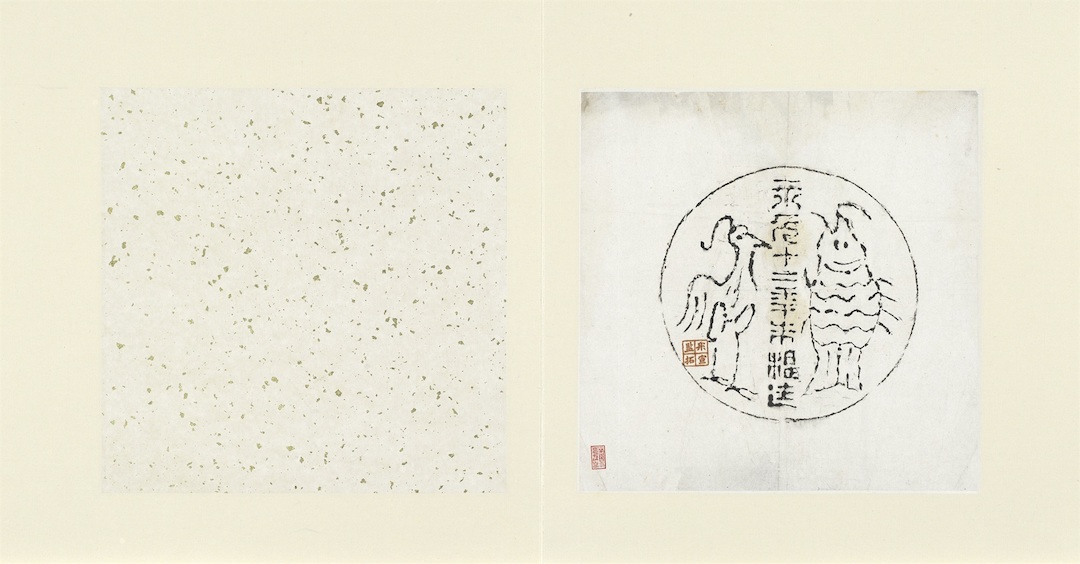 永元十二年朱提造